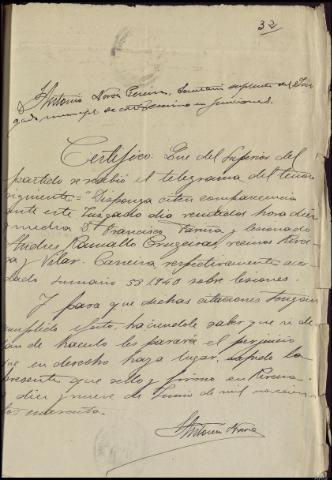 32
Antonio Novo Pereira, Secretario suplente del Juz
gado municipal de este término en funciones.
Certifico: Que del Superior del
partido se recibió el telegrama del tenor
siguiente = "Disponga citen comparecencia
ante este Juzgado día veintidos hora diez
y media Dª Francisca Fariña y lesionado
Andres Ramallo Cruzeiras, vecinos
y Vilar - Carreira respectivamente
dado sumario 53 1940 sobre lesiones.
Y para que dichas citaciones tengan
cumplido efecto, haciendole saber que si de
jan de hacerlo les parará el perjuicio
que en derecho haya lugar, expido la
presente que sello y firmo en
a diez y nueve de Junio de mil novecien
tos cuarenta.
Antonio Novo